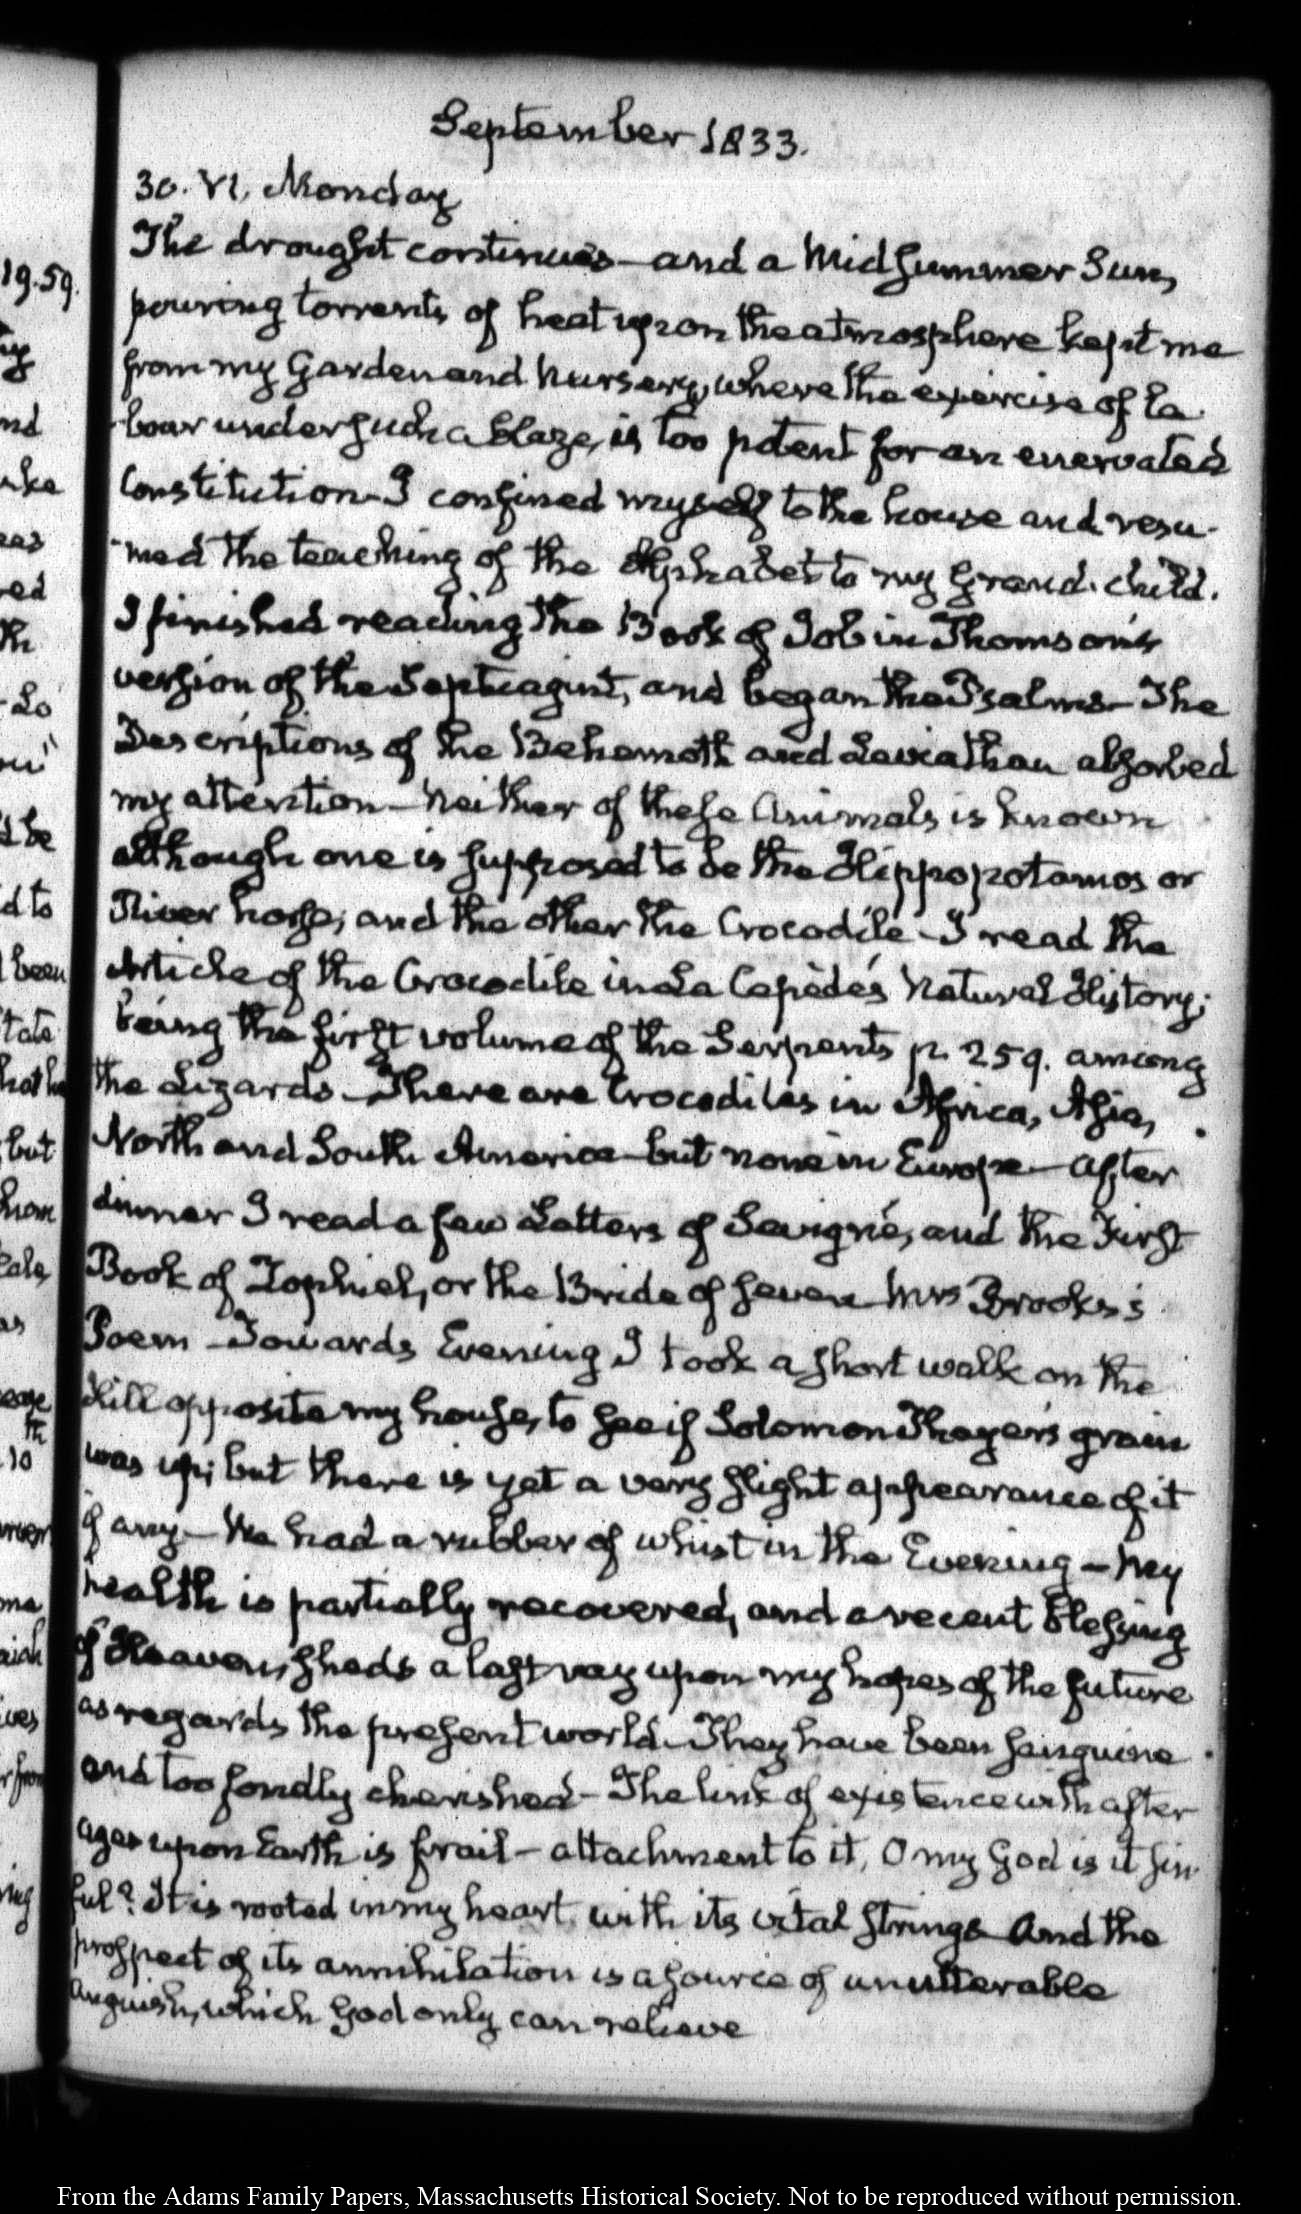 September 1833.
30. VI. Monday
The drought continues—and a Midsummer Sun,
pouring torrents of heat upon the atmosphere kept me
from my Garden and Nursery, where the exercise of la-
bour under such a blaze, is too potent for an enervated
Constitution—I confined myself to the house and resu-
-med the teaching of the Alphabet to my Grand-child.
I finished reading the Book of Job in Thomson's
version of the Septuagint, and began the Psalms—The
Descriptions of the Behemoth and Leviathan absorbed
my attention—Neither of these Animals is known
although one is supposed to be the Hippopotamos or
River horse; and the other the Crocodile—I read the
Article of the Crocodile in La Cepède's Natural History;
being the first volume of the Serpents p. 259. among
the Lizards—There are Crocodiles in Africa, Asia,
North and South America—but none in Europe—After
dinner I read a few Letters of Sevigné, and the First
Book of Zophiel, or the Bride of Seven—Mrs Brooks's
Poem—Towards Evening I took a short walk on the
Hill opposite my house, to see if Solomon Thayer's grain
was up; but there is yet a very slight appearance of it
if any—We had a rubber of whist in the Evening—My
health is partially recovered, and a recent blessing
of Heaven, sheds a last ray upon my hopes of the future
as regards the present world—They have been sanguine
and too fondly cherished—The link of existence with after
ages upon Earth is frail—attachment to it, O my God is it sin-
ful? It is rooted in my heart with its vital strings—And the
prospect of its annihilation is a source of unutterable
anguish, which God only can relieve
19.59.
nd
red
th
d be
d to
been
but
10
From the Adams Family Papers, Massachusetts Historical Society. Not to be reproduced without permission.